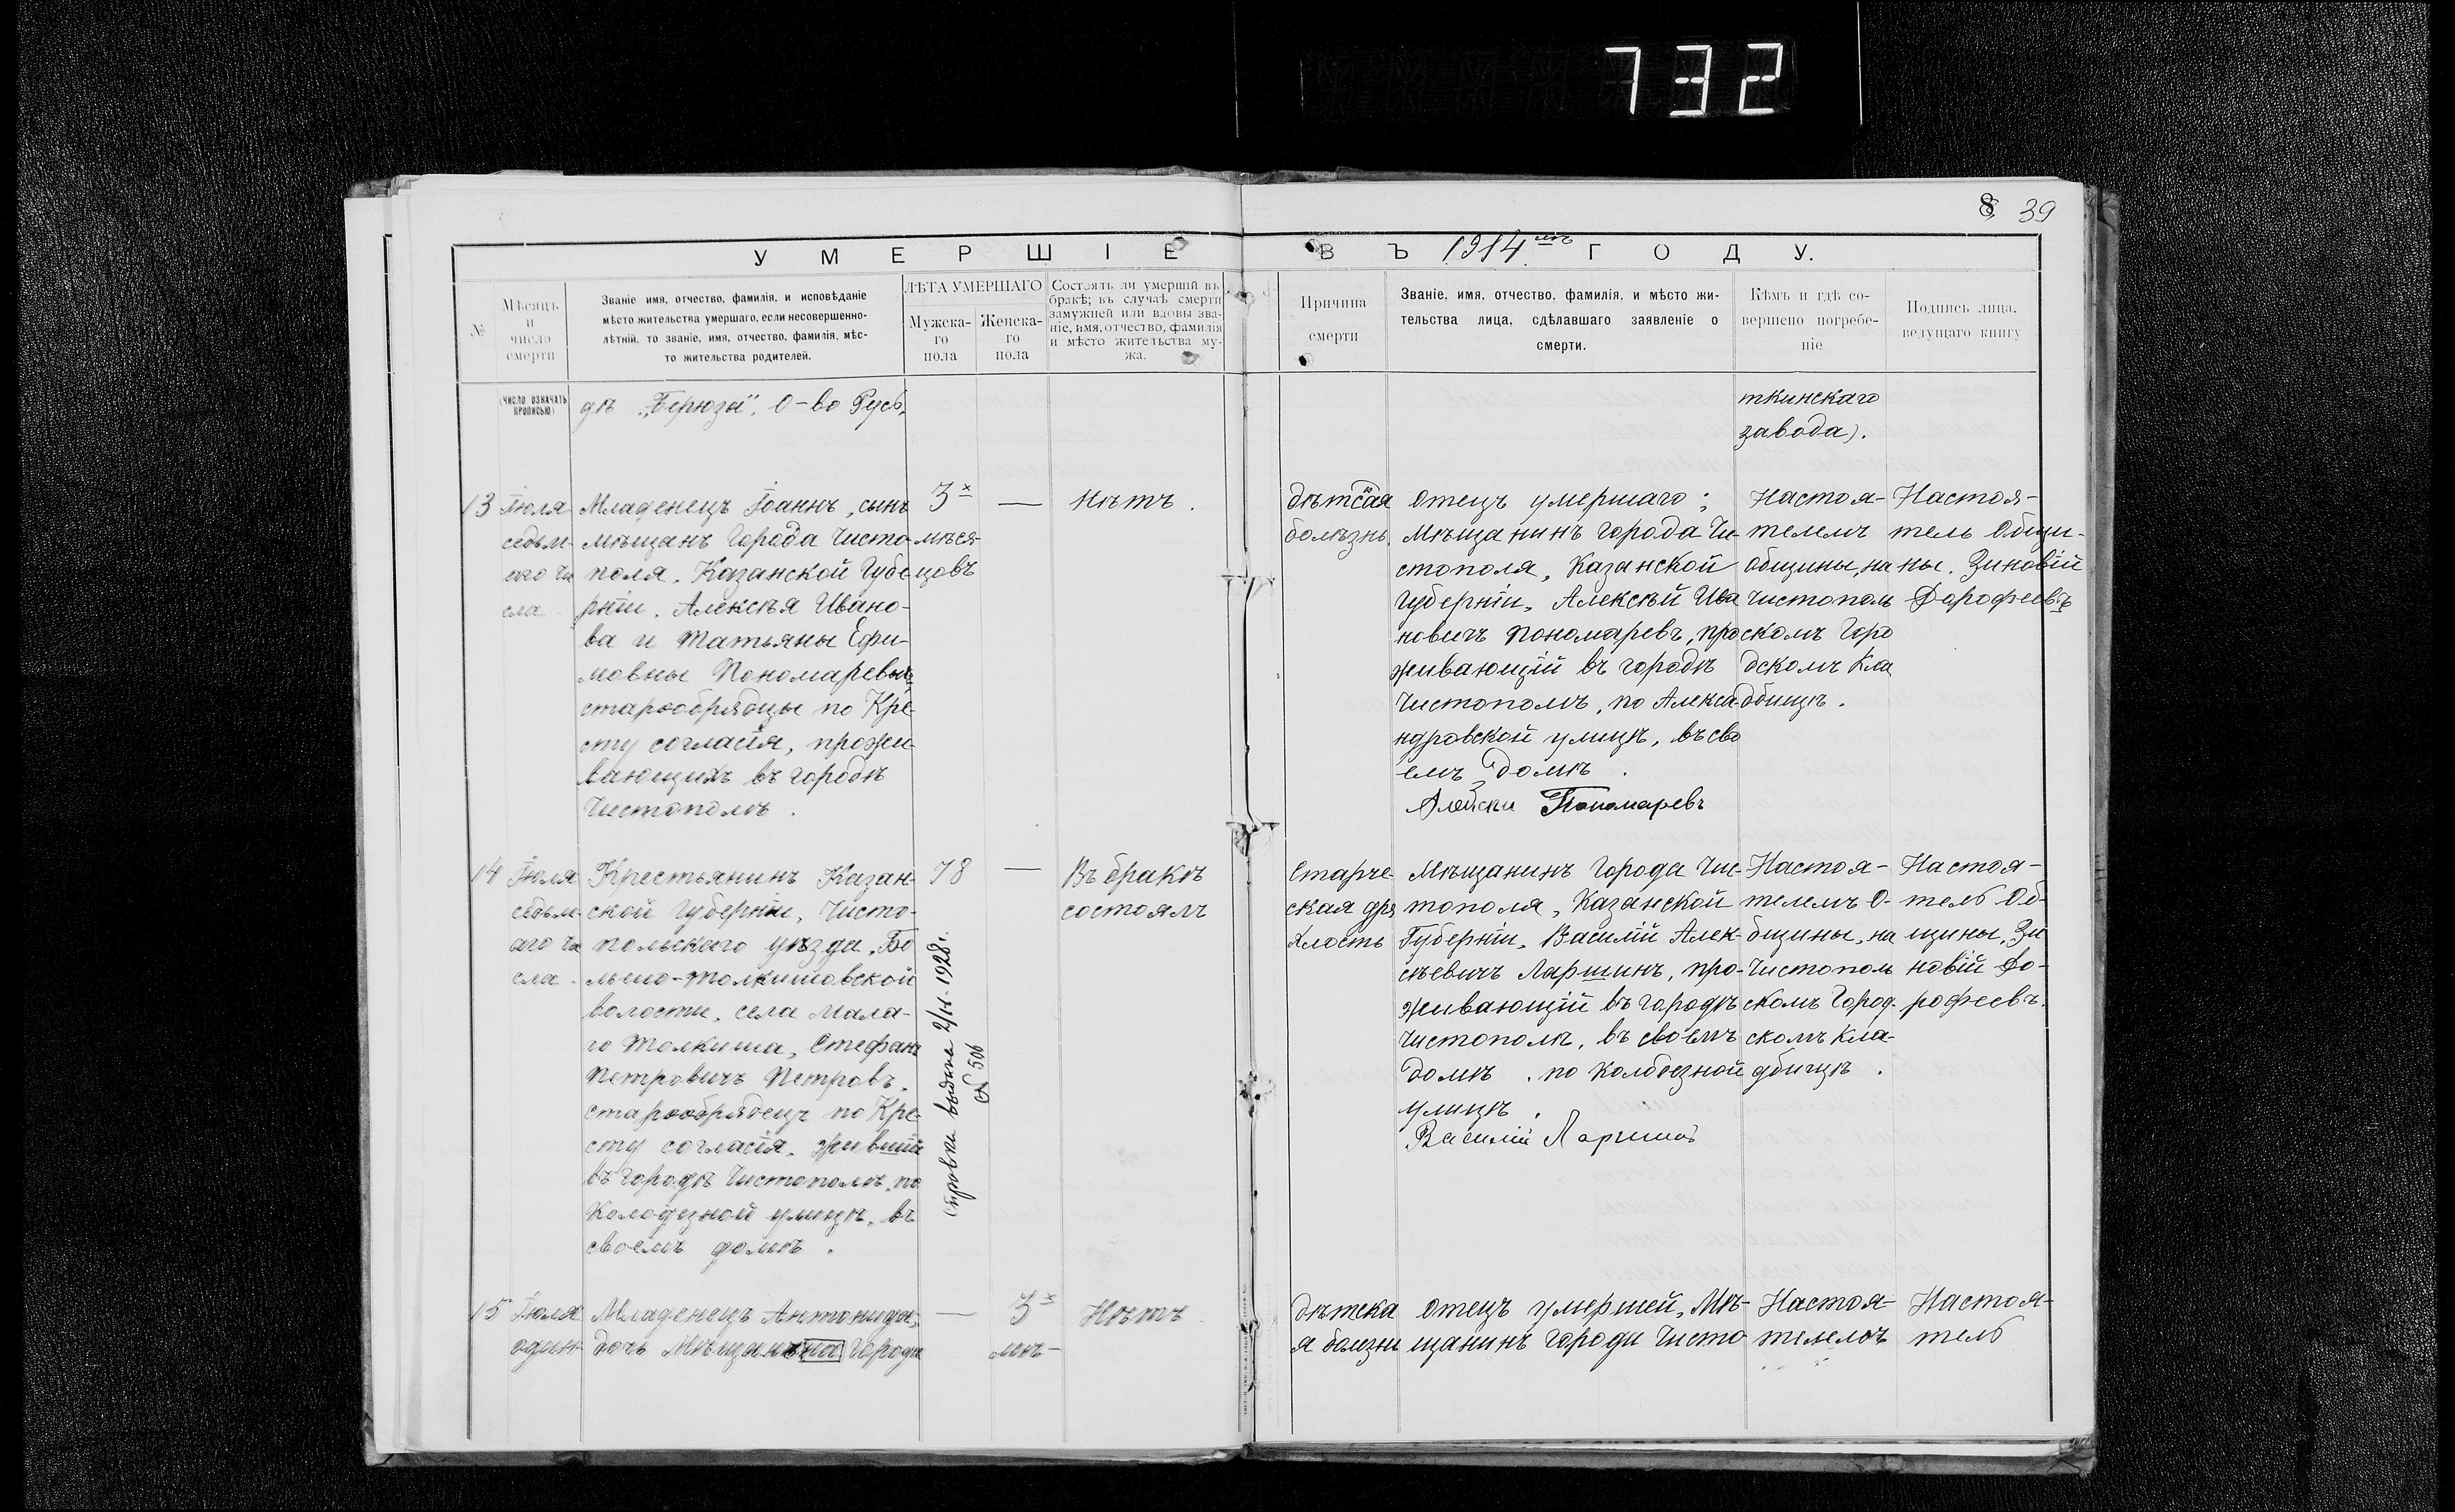 732
8 39
УМЕРШІЕ ВЪ 1914мъ ГОДУ.
№
Мѣсяцъ
и
число
смерти
Званіе имя, отчество, фамилія, и исповѣданіе
мѣсто жительства умершаго, если несовершенно-
лѣтній, то званіе, имя, отчество, фамилія, мѣс-
то жительства родителей.
ЛѢТА УМЕРШАГО
Мужска-
го
пола
Женска-
го
пола
Состоятъ ли умершій въ
бракѣ; въ случаѣ смерти
замужней или вдовы зва-
ніе, имя, отчество, фамилія
и мѣсто жительства му-
жа.
Причина
смерти
Званіе, имя, отчество, фамилія, и мѣсто жи-
тельства лица, сдѣлавшаго заявленіе о
смерти.
Кѣмъ и гдѣ со-
вершено погребе-
ніе
Подпись лица,
ведущаго книгу
(ЧИСЛО ОЗНАЧАТЬ
ПРОПИСЬЮ)
дѣ „Берюза", О-во Русь,
ткинскаго
завода).
13
Іюля
седьм-
аго чи
сла
Младенецъ Іоаннъ, сынъ
мѣщанъ Города Чисто-
поля, Казанской Губе-
рніи, Алексѣя Ивано-
ва и Татьяны Ефи-
мовны Пономаревыхъ
старообрядцы по Кре-
сту согласія, прожи-
вающихъ въ городѣ
Чистополѣ.
3х
мѣся-
цовъ
—
Нѣтъ.
дѣтская
болѣзнь.
Отецъ умершаго;
Мѣщанинъ города Чи-
стополя, Казанской
Губерніи, Алексѣй Ива
новичъ Пономаревъ, про
живающій въ городѣ
Чистополѣ, по Алекса-
ндровской улицѣ, въ сво
емъ домѣ.
Алексѣи Пономаревъ
Настоя-
телемъ
общины, на
Чистополь
скомъ Горо
дскомъ Кла
дбищѣ.
Настоя-
тель Общи-
ны. Зиновій
Дорофеевъ
14
Іюля
седьм-
аго чи
сла.
Крестьянинъ Казан-
ской Губерніи, Чисто-
польскаго уѣзда, Бо
льше-Толкишовской
волости, села Мала-
го Толкиша, Стефанъ
Петровичъ Петровъ,
старообрядецъ по Кре-
сту согласія, жившій
въ городѣ Чистополѣ, по
Колодезной улицѣ, въ
своемъ домѣ.
78
—
Справка выдана 2/II-1928г.
№ 506
Въ бракѣ
состоялъ
Старче-
ская дря
хлость
Мѣщанинъ Города Чис-
тополя, Казанской
Губерніи, Василій Алек-
сѣевичъ Ларшинъ, про-
живающій въ городѣ
Чистополѣ, въ своемъ
домѣ, по Колодезной
улицѣ.
Василій Ларшинъ
Настоя-
телемъ О-
бщины, на
Чистополь
скомъ Город-
скомъ кла-
дбищѣ.
Настоя-
тель Об-
щины, Зи
новій До-
рофеевъ.
15
Іюля
один-
Младенецъ Антонида,
дочь Мѣщанина Города
—
3х
мѣ-
Нѣтъ
дѣтска
я болѣзнь
Отецъ умершей, Мѣ-
щанинъ Города Чисто
Настоя-
телемъ
Настоя-
тель